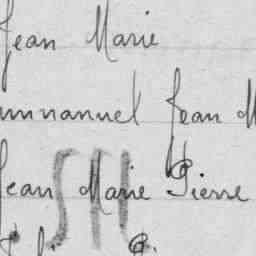 Jean Marie
mmanuel Jean M
Jean Marie Pierre